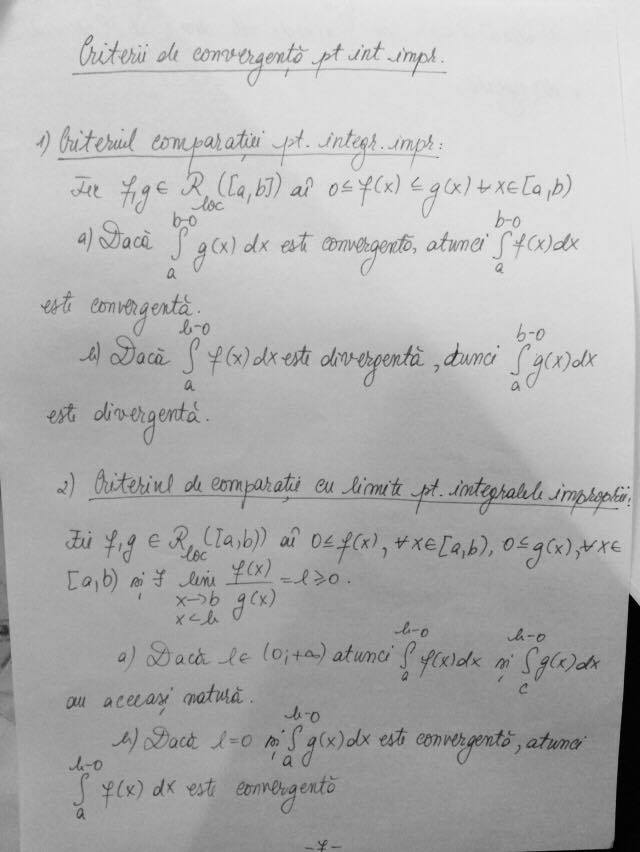 Criterii de convergență pt int impr.
1) Criteriul comparației pt. integr. impr:
Fie f,g ∈ R_loc ([a,b]) aî 0≤f(x) ≤ g(x) ∀x∈[a,b)
a) Dacă ∫_a^{b-0} g(x) dx este convergentă, atunci ∫_a^{b-0} f(x)dx
este convergentă.
b) Dacă ∫_a^{b-0} f(x)dx este divergentă, atunci ∫_a^{b-0} g(x)dx
este divergentă.
2) Criteriul de comparație cu limite pt. integralele improprii:
Fie f,g ∈ R_loc ([a,b)) aî 0≤f(x), ∀x∈[a,b), 0≤g(x), ∀x∈
[a,b) și ∃ lim_{x→b, x<b} f(x)/g(x) = l ≥ 0.
a) Dacă l∈ (0;+∞) atunci ∫_a^{b-0} f(x)dx și ∫_c^{b-0} g(x)dx
au aceeași natură.
b) Dacă l=0 și ∫_a^{b-0} g(x)dx este convergentă, atunci
∫_a^{b-0} f(x) dx este convergentă
-7-